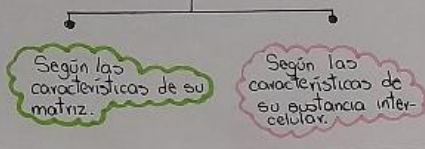 Según las
características de su
matriz.
Según las
características de
su sustancia inter-
celular.